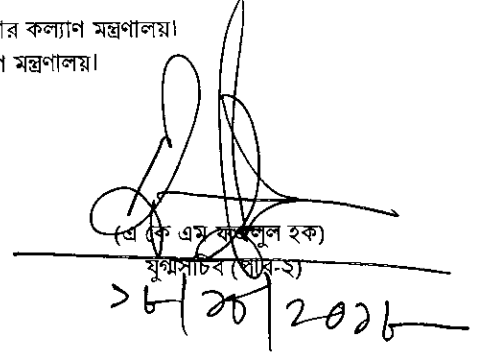 র কল্যাণ মন্ত্রণালয়।
মন্ত্রণালয়।
(এ কে এম ফজলুল হক)
যুগ্মসচিব (পার-২)
১৮/১০/২০১৮